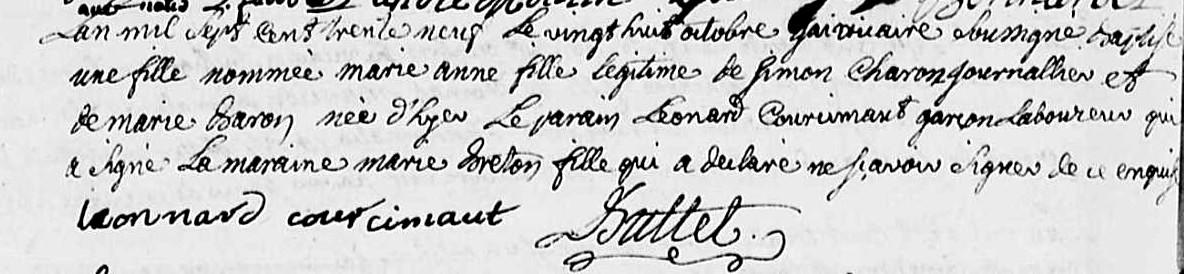 Lan mil sept cent trente neuf le vingt huit octobre jai vicaire soussigné baptisé
une fille nommée marie anne fille legitime de simon Charon journallier et
de marie Baron née d'hyer Le parain Leonard Courcimaut garçon Laboureur qui
a signé La maraine marie breton fille qui a declaré ne sçavoir signer de ce enquise
leonnard courcimaut